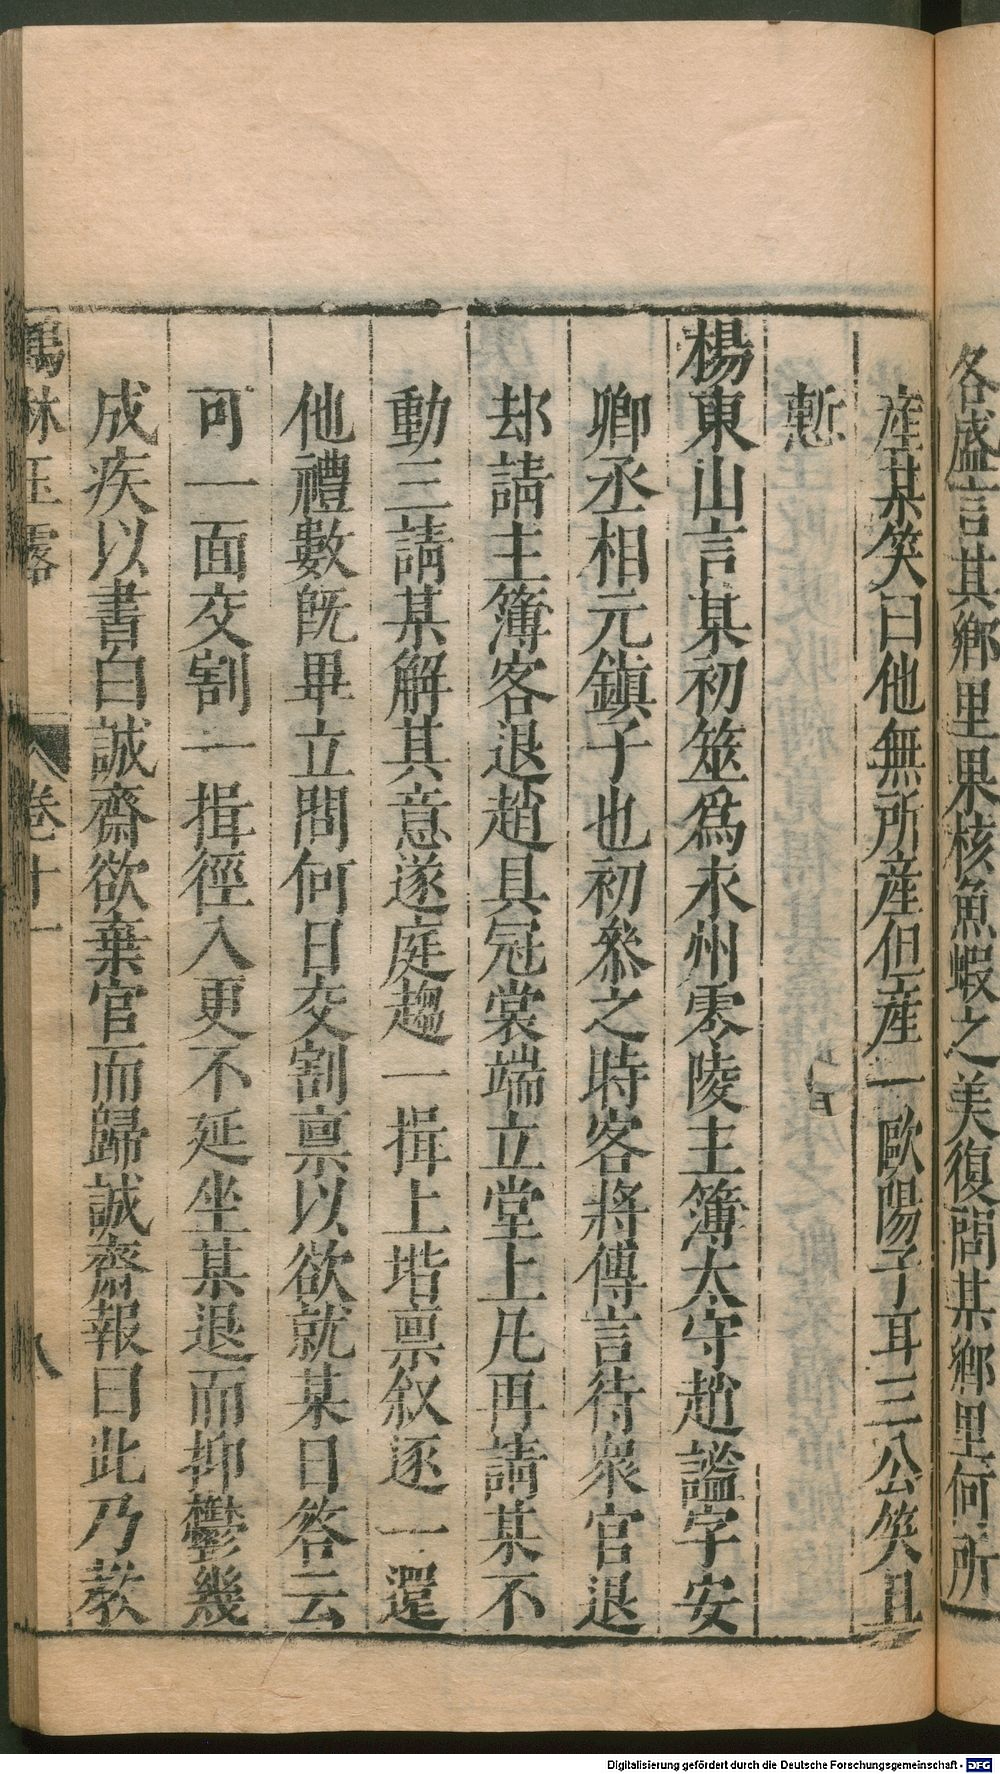 各盛言其鄉里果核魚蝦之美復問某鄉里何所
產某笑曰他無所產但產一歐陽子耳三公笑且
慙
楊東山言某初筮爲永州零陵主簿太守趙謐字安
卿丞相元鎮子也初叅之時客將傳言待衆官退
却請主簿客退趙具冠裳端立堂上凡再請某不
動三請某解其意遂庭趨一揖上堦禀叙逐一還
他禮數旣畢立問何日交割禀以欲就某日答云
可一面交割一揖徑入更不延坐某退而抑鬱幾
成疾以書白誠齋欲棄官而歸誠齋報曰此乃教
鶴林玉露 卷十一 八
Digitalisierung gefördert durch die Deutsche Forschungsgemeinschaft - DFG